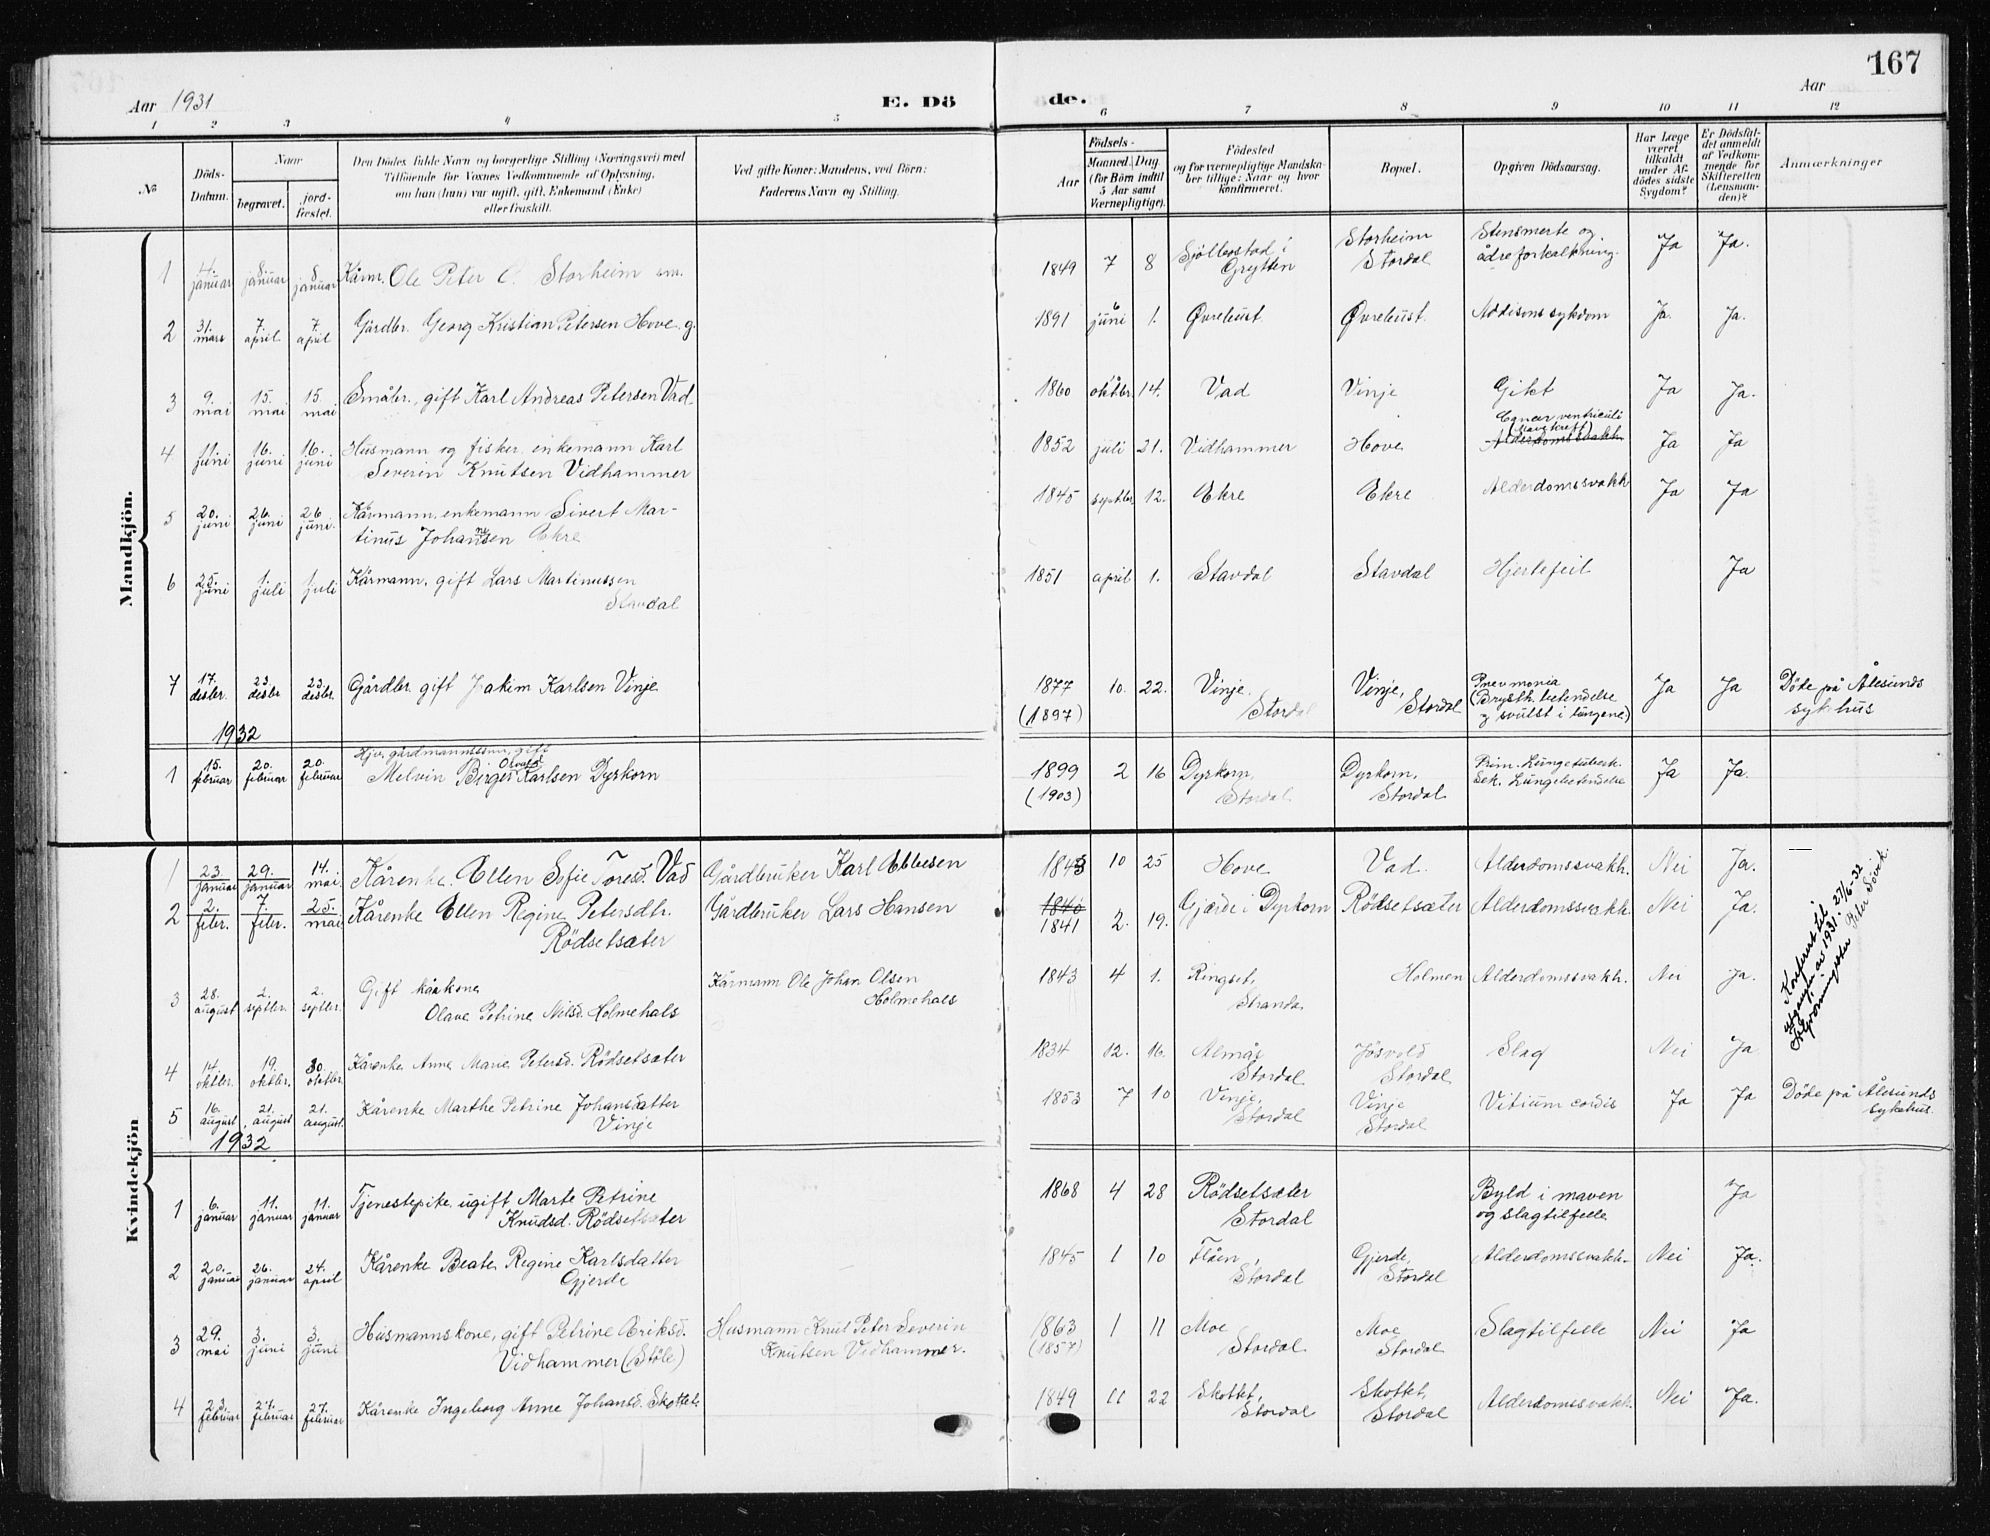 167
Aar 1931
E. Dö
de.
Aar
1 2 3 4 5 6 7 8 9 10 11 12
№
Döds-
Datum.
Naar
begravet.
jord-
fæstet.
Den Dödes fulde Navn og borgerlige Stilling (Næringsvei) med
Tilföiende for Voxnes Vedkommende af Oplysning,
om han (hun) var ugift, gift, Enkemand (Enke)
eller fraskilt.
Ved gifte Koner: Mandens, ved Börn:
Faderens Navn og Stilling.
Födsels-
Aar
Maaned. Dag.
(for Börn indtil
5 Aar samt
Værnepligtige).
Födested
og for værnepligtige Mandska-
ber tillige: Naar og hvor
konfirmeret.
Bopæl.
Opgiven Dödsaarsag.
Har Læge
været
tilkaldt
under Af-
dödes sidste
Sygdom?
Er Dödsfal-
det anmeldt
af Vedkom-
mende for
Skifteretten
(Lensman-
den)?
Anmærkninger
Mandkjön.
1 4. januar 8 januar 8 januar Kårm. Ole Peter O. Storheim em. 1849 7 8 Grytten Storheim Stordal Stensmerte og ådreforkalkning. Ja Ja.
2 31. mars 7. april 7. april Gårdbr. Georg Kristian Petersen Hove. g. 1891 6 juni 1. Øvrebust. Øvrebust. Addisons sykdom Ja. Ja.
3 9. mai 15. mai 15. mai Småbr., gift Karl Andreas Petersen Vad 1860 oktbr. 14. Vad Vinje Gikt Ja Ja.
4 11. juni 16. juni 16. juni Husmann og fisker, enkemann Karl
Severin Knutsen Vidhammer 1852 juli 21. Vidhammer Hove Cancer ventriculi
(Mavekreft)
Alderdomssvakh. Ja Ja
5 20. juni 26. juni 26 juni. Kårmann, enkemann Sivert Mar-
tinus Johannesen Ekre 1845 septbr. 12. Ekre Ekre Alderdomssvakh Ja Ja
6 25. juni 1. juli 1. juli Kårmann, gift Lars Martinussen
Stavdal 1851 april 1. Stavdal Stavdal Hjertefeil Ja
7 17. desbr. 23. desbr 23. desbr. Gårdbr. gift Joakim Karlsen Vinje 1877 (1897) 10. 22. Vinje, Stordal Vinje, Stordal Pneumonia
(Brysth. betendelse
og svulst i lungene) Ja Ja Döde på Ålesunds
sykehus
1932
1 15. februar 20. februar 20. februar Hjv. gårdmannssønn, gift
Melvin Birger Osvald Karlsen Dyrkorn 1899 (1903) 2 16 Dyrkorn, Stordal Dyrkorn, Stordal Prim. Lungetuberk.
Sek. Lungebetendelse Ja Ja.
Kvindekjön
1 23. januar 29. januar 14. mai Kårenke. Ellen Sofie Toresd. Vad Gårdbruker Karl Ebbesen 1843 10 25 Hove Vad. Alderdomssvakh. Nei Ja.
2 2. febr. 7. febr. 25. mai Kårenke Ellen Regine Petersdtr.
Rödsetsæter Gårdbruker Lars Hansen 1840 1841 2. 19. Gjærde i Dyrkorn Rödsetsæter Alderdomssvakh. Nei Ja.
3 28. august 2. septbr. 2. septbr. Gift kårkone
Olave Petrine Nilsd. Holmehals Kårmann Ole Johan Olsen
Holmehals 1843 4 1. Ringset, Stranda. Holmen Alderdomssvakh. Nei Ja.
Konferert til
utgangen av 1931. 27/6-32
Peter Sövik.
4 14. oktbr. 19. oktbr. 30. oktbr. Kårenke Anne Marie Petersd. Rödsetsæter 1834 12. 16. Almås Stordal Jøsvold Stordal Slag Nei Ja
5 16. august 21. august 21. august. Kårenke Marthe Petrine Johansdatter
Vinje 1853 7 10 Vinje, Stordal Vinje Stordal Vitium cordis Ja Ja Döde på Ålesunds
sykehus.
1932
1 6. januar 11. januar 11. januar Tjenestepike, ugift Marte Petrine
Knudsd. Rödsetsæter 1868 4 28 Rödsetsæter Stordal Byld i maven
og slagtilfelle Ja
2 20. januar 26. januar 24. april Kårenke Beate Regine Karlsdatter
Gjerde 1845 1 10 Flåen, Stordal Gjerde, Stordal Alderdomssvakh. Nei Ja.
3 29. mai 3. juni 3. juni Husmannskone, gift Petrine Eriksd.
Vidhammer (Støle) Husmann Knut Peter Severin
Knutsen Vidhammer. 1863 (1857) 1 11 Moe Stordal Moe Stordal Slagtilfelle Nei Ja
4 23. februar 27. februar 27. februar Kårenke Ingeborg Anne Johansd. Skottet 1849 11 22 Skottet, Stordal Skottet, Stordal Alderdomssvakh. Nei Ja.